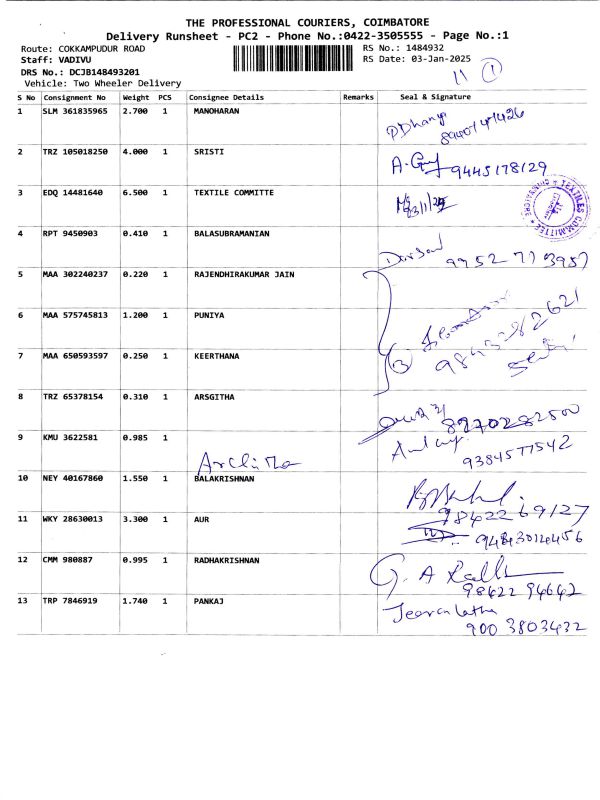 THE PROFESSIONAL COURIERS, COIMBATORE
Delivery Runsheet - PC2 - Phone No.:0422-3505555 - Page No.:1
Route: COKKAMPUDUR ROAD
RS No.: 1484932
Staff: VADIVU
RS Date: 03-Jan-2025
DRS No.: DCJB148493201
Vehicle: Two Wheeler Delivery
11 1
S No Consignment No Weight PCS Consignee Details Remarks Seal & Signature
1 SLM 361835965 2.700 1 MANOHARAN
P Dhanya
2 TRZ 105018250 4.000 1 SRISTI
9445178129
3 EDQ 14481640 6.500 1 TEXTILE COMMITTE
TEXTILES COMMITTEE
4 RPT 9450903 0.410 1 BALASUBRAMANIAN
9952 713957
5 MAA 302240237 0.220 1 RAJENDHIRAKUMAR JAIN
6 MAA 575745813 1.200 1 PUNIYA
7 MAA 650593597 0.250 1 KEERTHANA
3
8 TRZ 65378154 0.310 1 ARSGITHA
9 KMU 3622581 0.985 1
Archi
9384577542
10 NEY 40167860 1.550 1 BALAKRISHNAN
98422 69127
11 WKY 28630013 3.300 1 AUR
12 CMM 980887 0.995 1 RADHAKRISHNAN
98422 94642
13 TRP 7846919 1.740 1 PANKAJ
Jeevalatha
900 3803432